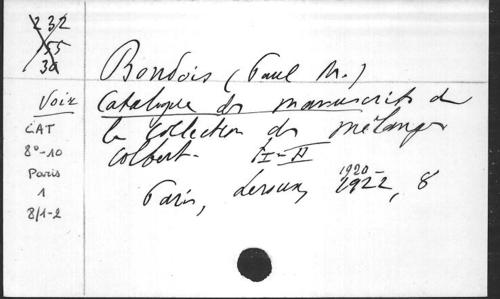 232
55
30
Voir
CAT
8°-10
Paris
1
8/1-2
Bondois (Paul M.)
Catalogue des manuscrits de
la collection des mélanges
Colbert. I-II
Paris, Leroux, 1920-
1922, 8